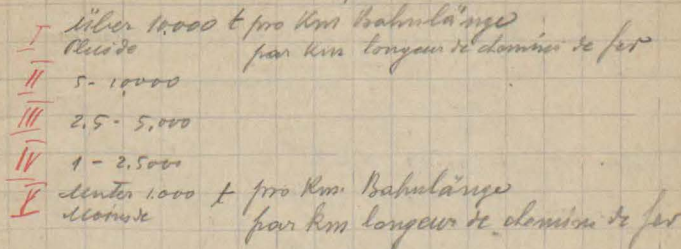 I über 10,000 t pro Km Bahnlänge
Plus de par km longeur de chemins de fer
II 5-10,000
III 2,5-5,000
IV 1-2,5000
V Unter 1.000 t pro Km. Bahnlänge
Moins de par km longeur de chemins de fer